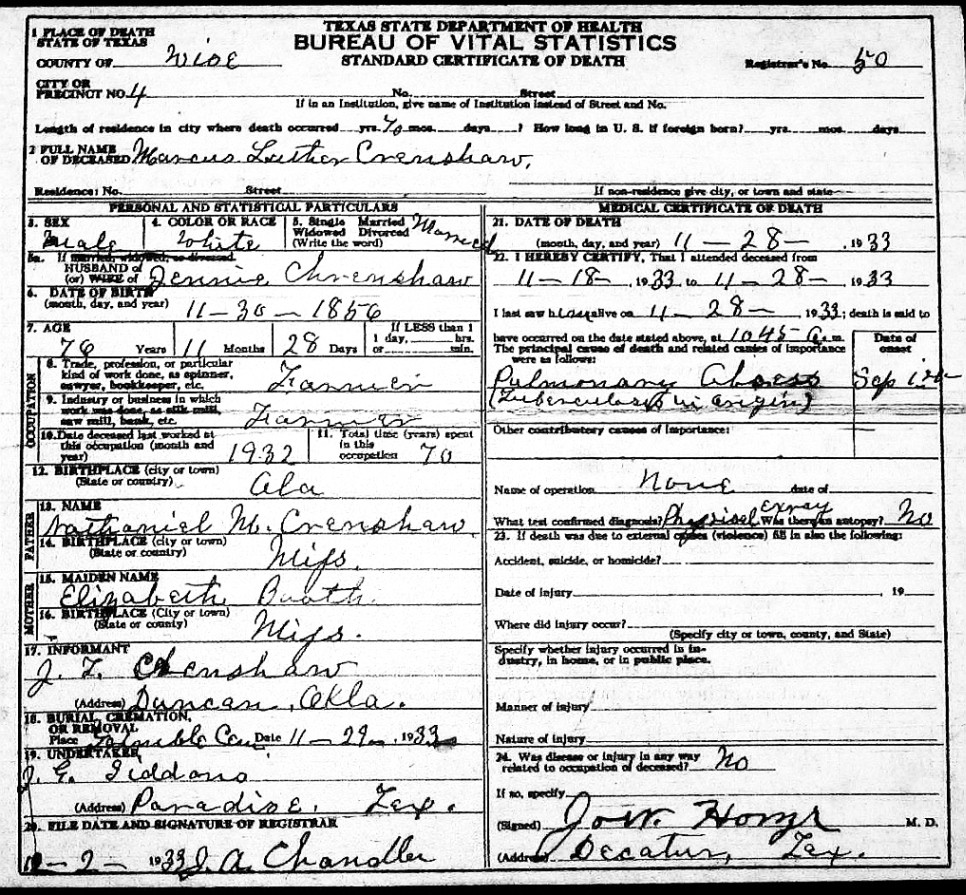 TEXAS STATE DEPARTMENT OF HEALTH
BUREAU OF VITAL STATISTICS
STANDARD CERTIFICATE OF DEATH
1 PLACE OF DEATH
STATE OF TEXAS
COUNTY OF Wise
Registrar's No. 50
CITY OR
PRECINCT NO. 4 No. Street
If in an Institution, give name of Institution instead of Street and No.
Length of residence in city where death occurred yrs. 70 mos. days ? How long in U. S. if foreign born? yrs. mos. days
2 FULL NAME
OF DECEASED Marcus Luther Crenshaw,
Residence: No. Street If non-residence give city, or town and state
PERSONAL AND STATISTICAL PARTICULARS
3. SEX Male
4. COLOR OR RACE White
5. Single Married
Widowed Divorced
(Write the word) Married
5a. If married, widowed, or divorced
HUSBAND of
(or) WIFE of Jennie Chrenshaw
6. DATE OF BIRTH
(month, day, and year) 11-30-1856
7. AGE
76 Years 11 Months 28 Days
If LESS than 1
1 day, hrs.
or min.
OCCUPATION
8. Trade, profession, or particular
kind of work done, as spinner,
sawyer, bookkeeper, etc. Farmer
9. Industry or business in which
work was done, as silk mill,
saw mill, bank, etc. Farmer
10. Date deceased last worked at
this occupation (month and
year) 1932
11. Total time (years) spent
in this
occupation 70
12. BIRTHPLACE (city or town)
(State or country) Ala
FATHER
13. NAME
Nathaniel M. Crenshaw
14. BIRTHPLACE (city or town)
(State or country) Miss.
MOTHER
15. MAIDEN NAME
Elizabeth Booth
16. BIRTHPLACE (City or town)
(State or county) Miss.
17. INFORMANT
J. T. Chenshaw
(Address) Duncan, Okla.
18. BURIAL, CREMATION,
OR REMOVAL
Place Cem Date 11-29-, 1933
19. UNDERTAKER
J. G.
(Address) Paradise. Tex.
20. FILE DATE AND SIGNATURE OF REGISTRAR
12-2- 1933 J. A. Chandler
MEDICAL CERTIFICATE OF DEATH
21. DATE OF DEATH
(month, day, and year) 11-28-, 1933
22. I HEREBY CERTIFY, That I attended deceased from
11-18-, 1933, to 11-28-, 1933
I last saw h alive on 11-28-, 1933; death is said to
have occurred on the date stated above, at 1045 a.m.
The principal cause of death and related causes of importance
were as follows:
Date of
onset
Pulmonary Abscess Sep 1st
(Tuberculosis in origin)
Other contributory causes of importance:
Name of operation None date of
What test confirmed diagnosis? Physical Exray Was there an autopsy? No
23. If death was due to external causes (violence) fill in also the following:
Accident, suicide, or homicide?
Date of injury , 19
Where did injury occur?
(Specify city or town, county, and State)
Specify whether injury occurred in in-
dustry, in home, or in public place.
Manner of injury
Nature of injury
24. Was disease or injury in any way
related to occupation of deceased? No
If so, specify
(Signed) M. D.
(Address) Decatur, Tex.